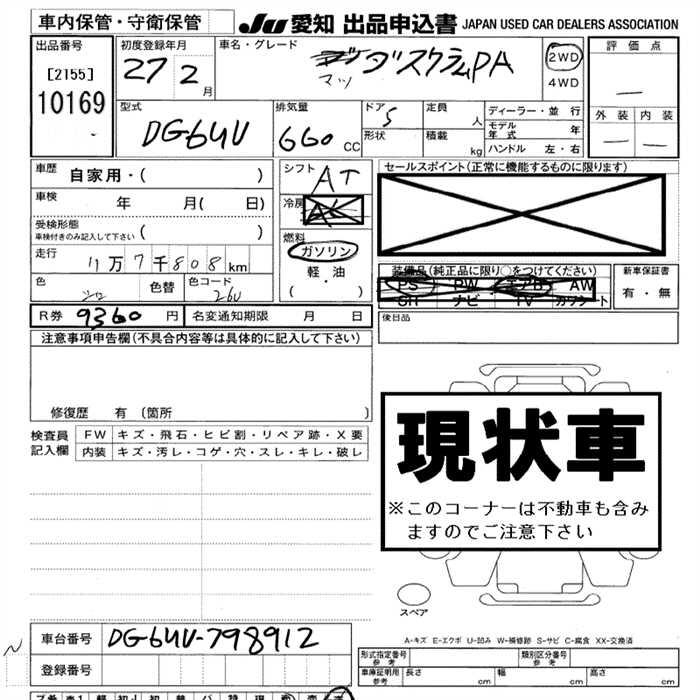 車内保管・守衛保管
JU 愛知 出品申込書 JAPAN USED CAR DEALERS ASSOCIATION
出品番号
[2155]
10169
初度登録年月
27 2 月
車名・グレード
マツ ダスクラムPA
2WD
4WD
評価点
外装 内装
型式
DG-64V
排気量
660 CC
ドア
5
形状
定員
人
積載
kg
ディーラー・並行
モデル年式 年
ハンドル 左・右
車歴
自家用・( )
車検
年 月( 日)
受検形態
車検付きのみ記入して下さい ( )
走行
11万7千808km
色
シロ
色替
色コード
26U
シフト
AT
冷房
燃料
ガソリン
軽・油
( ・ )
セールスポイント(正常に機能するものに限ります)
装備品(純正品に限り○をつけてください)
PS PW エアB AW
SR ナビ TV カワシート
新車保証書
有・無
後日品
R券 9360 円
名変通知期限 月 日
注意事項申告欄(不具合内容等は具体的に記入して下さい)
修復歴 有 (箇所 )
検査員記入欄
FW キズ・飛石・ヒビ割・リペア跡・X要
内装 キズ・汚レ・コゲ・穴・スレ・キレ・破レ
現状車
※このコーナーは不動車も含み
ますのでご注意下さい
スペア
A-キズ E-エクボ U-凹み W-補修跡 S-サビ C-腐食 XX-交換済
車台番号 DG-64V-798912
登録番号
型式指定番号
参考
類別区分番号
参考
車庫証明用
参考
長さ cm
幅 cm
高さ cm